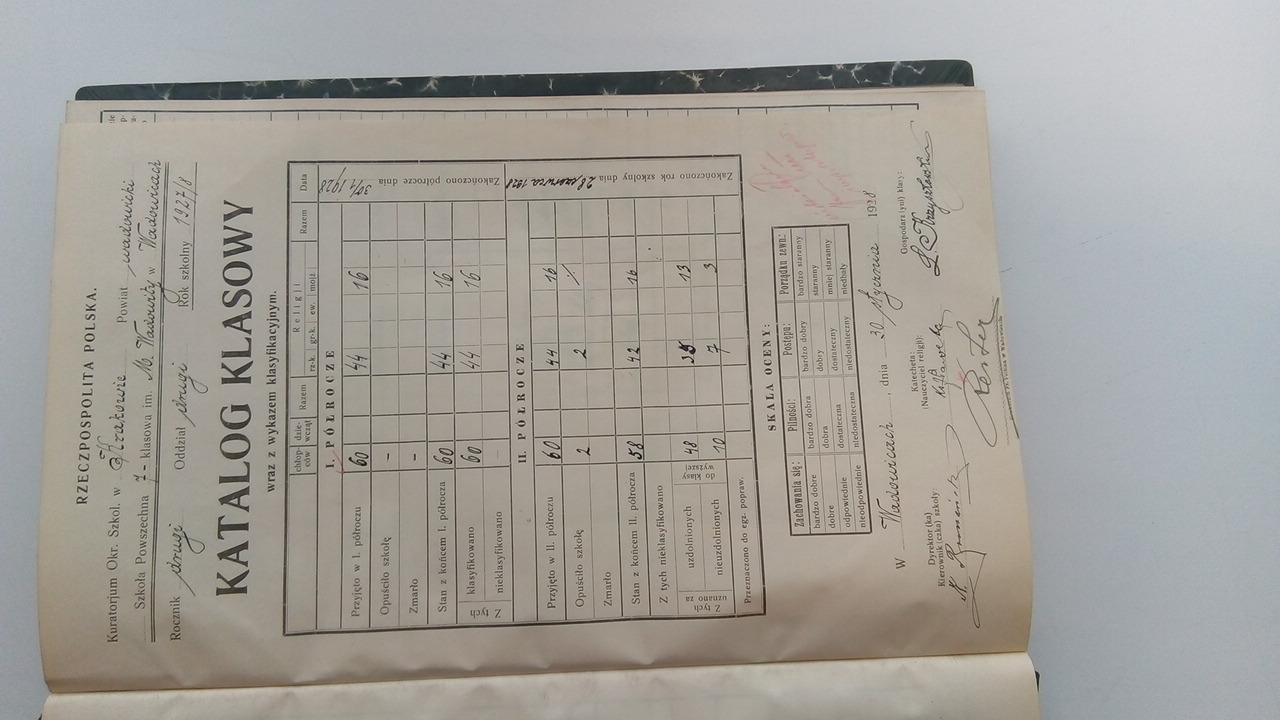 RZECZPOSPOLITA POLSKA.
Kuratorjum Okr. Szkol. w Krakowie Powiat wadowicki
Szkoła Powszechna 7 - klasowa im. M. Wadowity w Wadowicach
Rocznik drugi Oddział drugi Rok szkolny 1927/8
KATALOG KLASOWY
wraz z wykazem klasyfikacyjnym.
chłopców dziewcząt Razem Religji Razem Data
rz.-k. gr.-k. ew. mojż.
I. PÓŁROCZE
Przyjęto w I. półroczu 60 44 16
Opuściło szkołę - 
Zmarło - 
Stan z końcem I. półrocza 60 44 16
Z tych klasyfikowano 60 44 16
nieklasyfikowano
Zakończono półrocze dnia 30/1 1928
II. PÓŁROCZE
Przyjęto w II. półroczu 60 44 16
Opuściło szkołę 2 2
Zmarło
Stan z końcem II. półrocza 58 42 16
Z tych nieklasyfikowano
Z tych uznano za uzdolnionych do klasy wyższej 48 35 13
nieuzdolnionych 10 7 3
Przeznaczono do egz. popraw.
Zakończono rok szkolny dnia 28 czerwca 1928
SKALA OCENY:
Zachowania się: Pilności: Postępu: Porządku zewn.:
bardzo dobre bardzo dobra bardzo dobry bardzo staranny
dobre dobra dobry staranny
odpowiednie dostateczna dostateczny mniej staranny
nieodpowiednie niedostateczna niedostateczny niedbały
W Wadowicach, dnia 30 stycznia 1928
Dyrektor (ka) Katecheta: Gospodarz (yni) klasy:
Kierownik (czka) szkoły: (Nauczyciel religji):